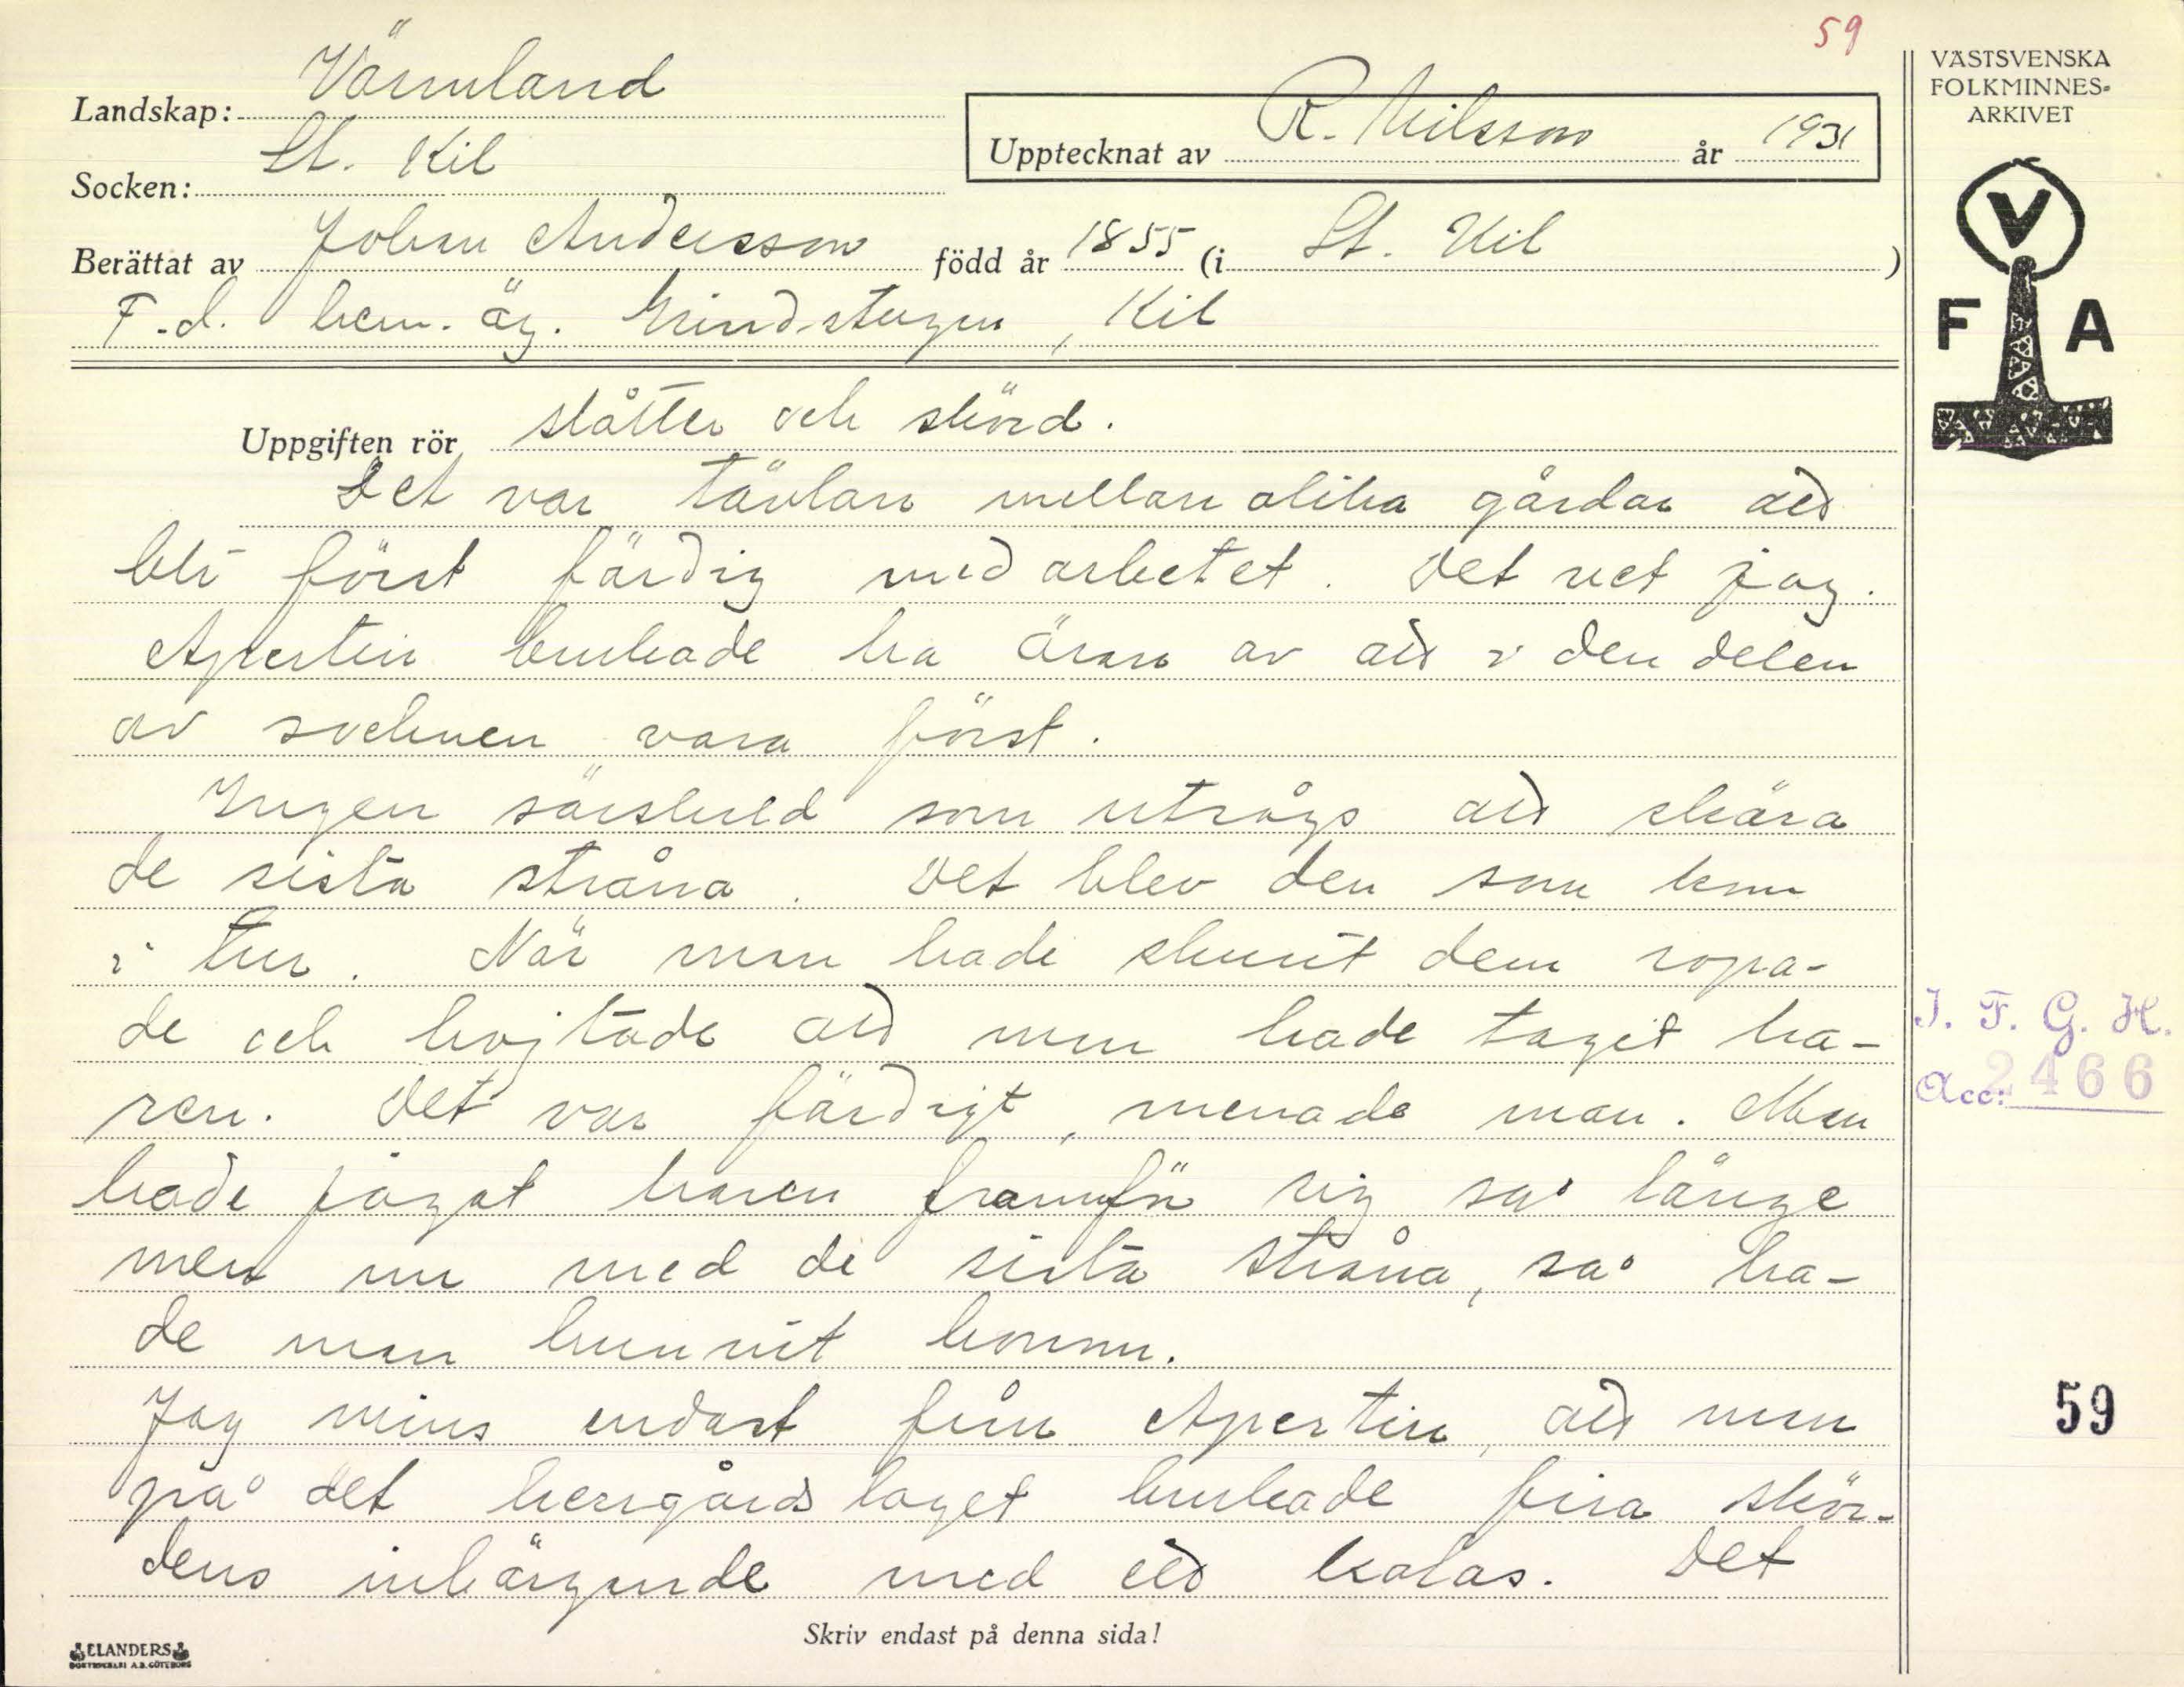 59
Landskap: Värmland
Socken: St. Kil
Upptecknat av R. Nilsson år 1931
Berättat av Johan Andersson född år 1855 (i St. Kil )
F.d. hem. äg. Kil
Uppgiften rör slåtter och skörd.
Det var tävlan mellan olika gårdar att
bli först färdig med arbetet. Det vet jag.
Apertin brukade ha äran av att i den delen
av socknen vara först.
Ingen särskild som utsågs att skära
de sista stråna. Det blev den som kom
i tur. När man hade skurit dem ropa-
de och hojtade att man hade tagit ha-
ren. Det var färdigt, menade man. Man
hade jagat haren framför sig så länge
men nu med de sista stråna, så ha-
de man hunnit honom.
Jag mins endast från Apertin, att man
på det herrgårdslaget brukade fira skör-
dens inbärgande med ett kalas. Det
Skriv endast på denna sida!
ELANDERS
BOKTRYCKERI A.B. GÖTEBORG
VÄSTSVENSKA
FOLKMINNES-
ARKIVET
V
F A
I. F. G. H.
Acc: 2466
59